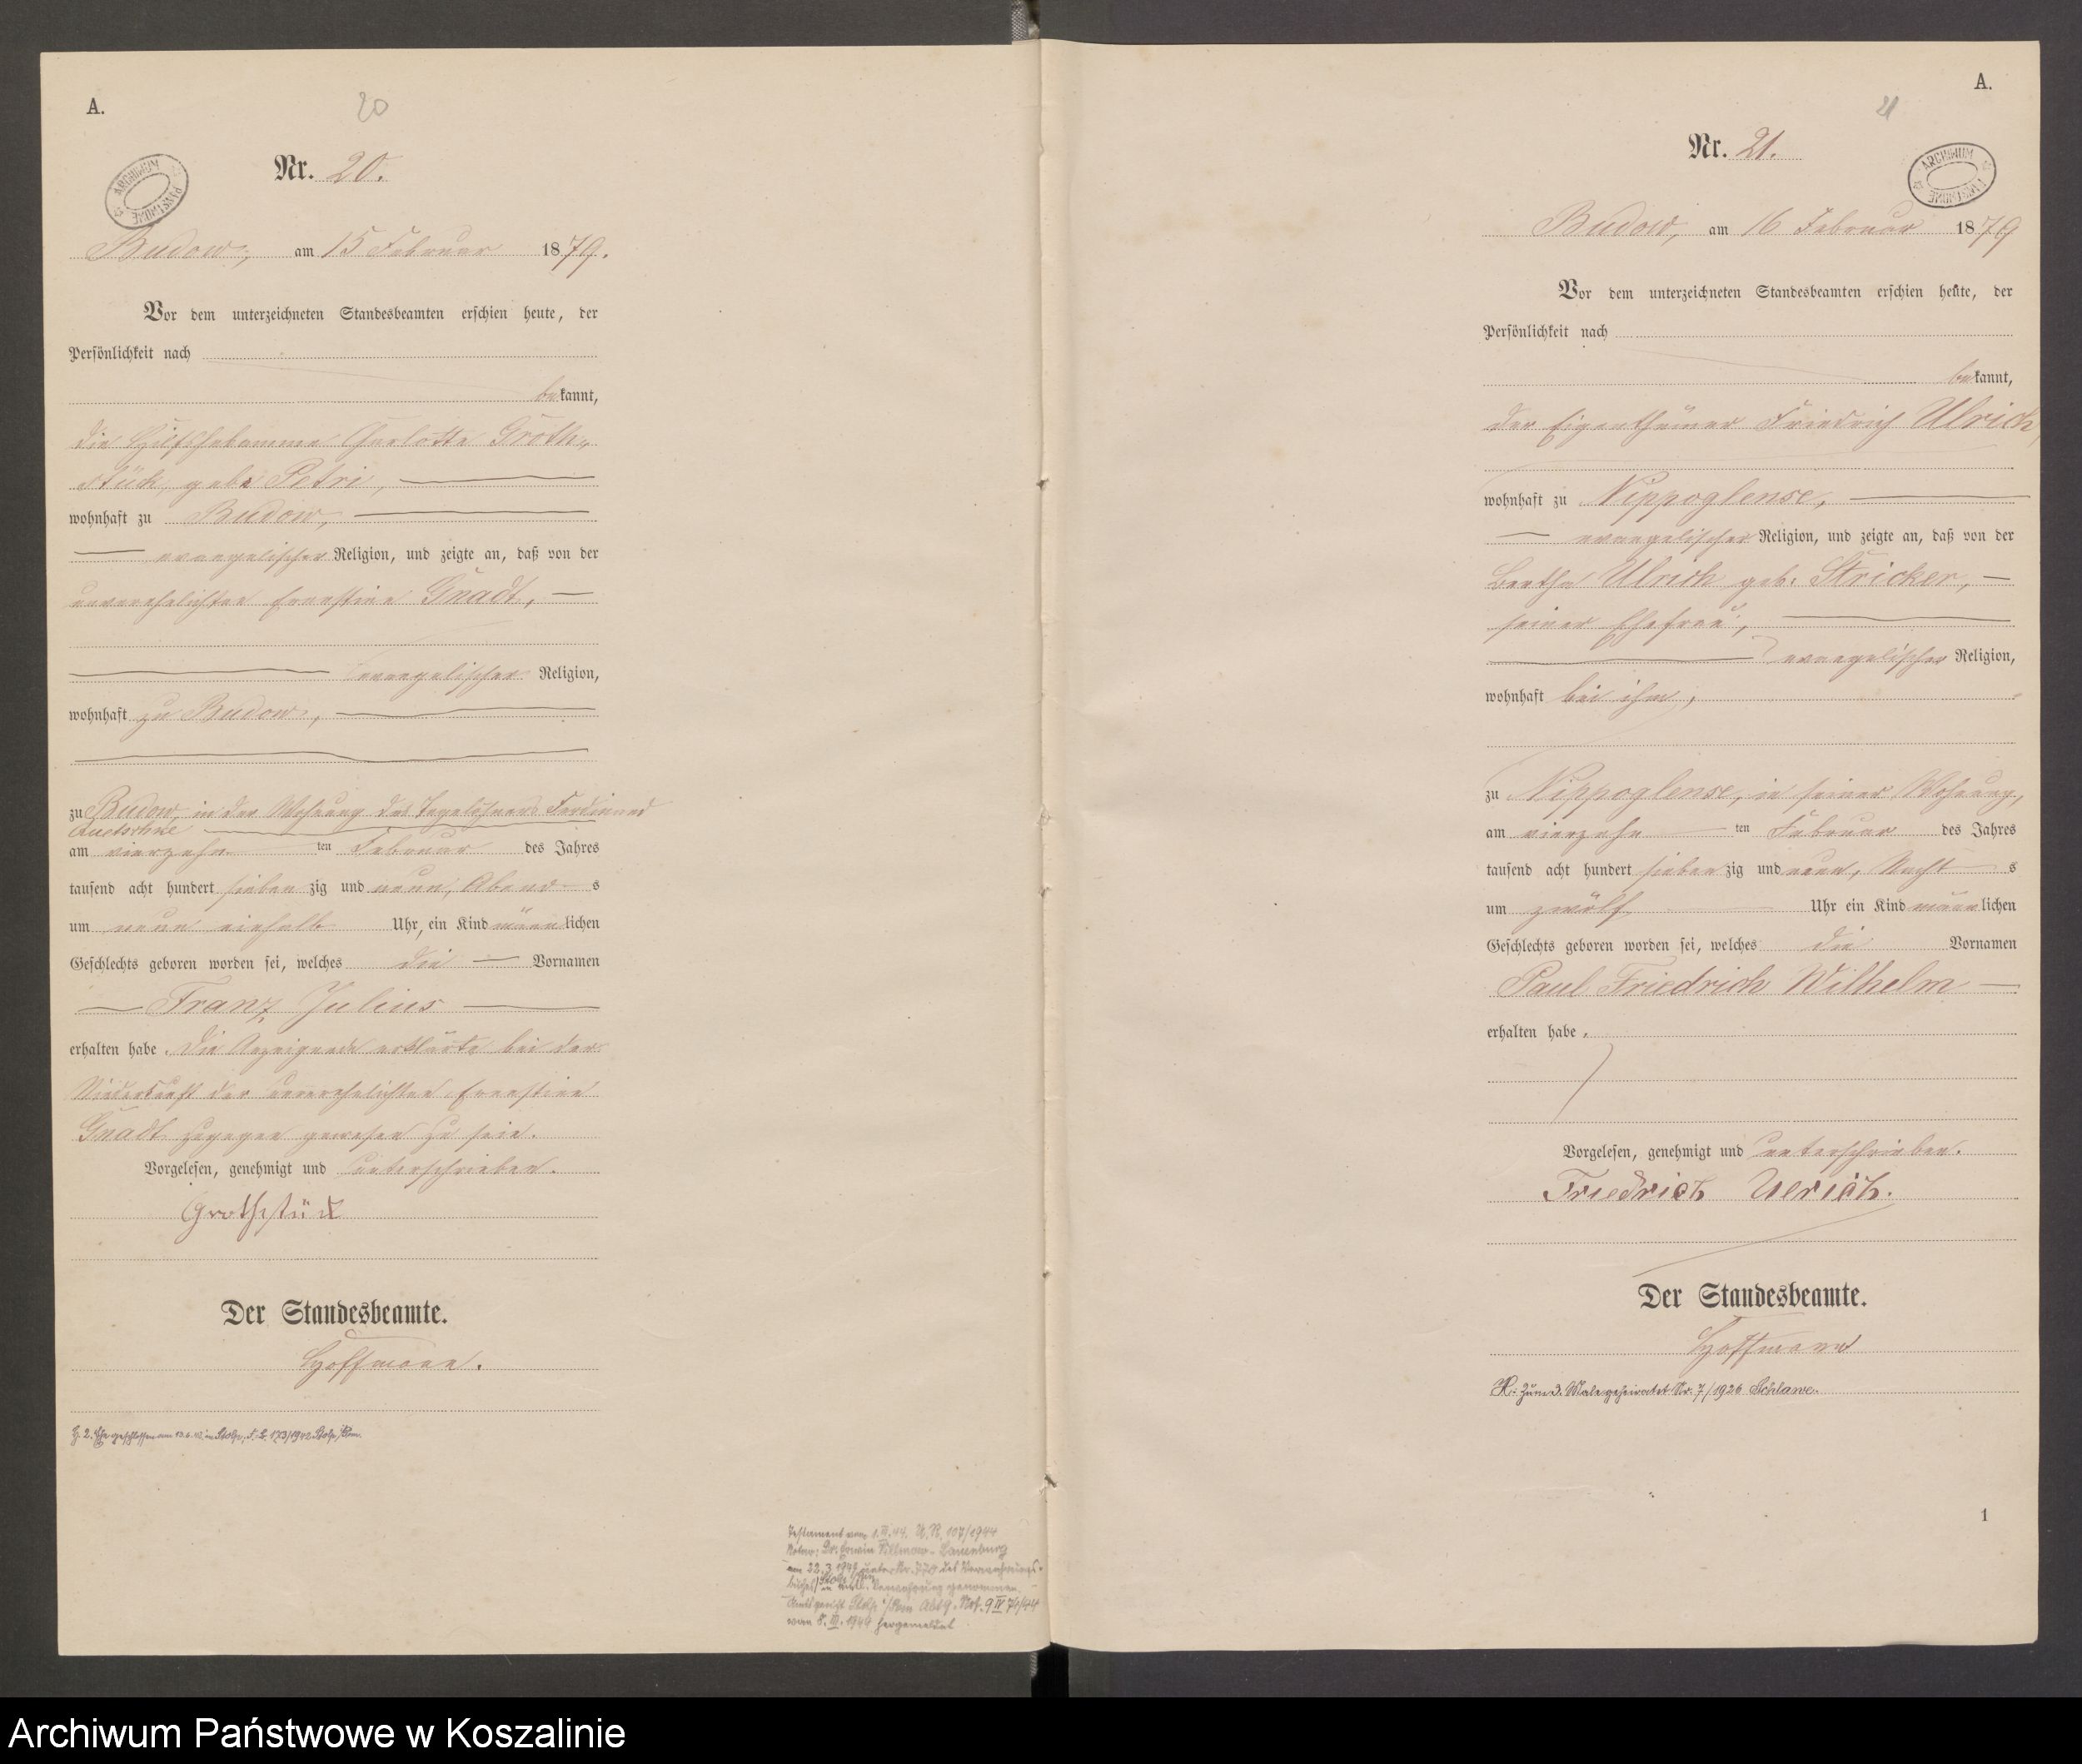 A.
20
Nr. 20.
ARCHIWUM PAŃSTWOWE
Budow, am 15 Februar 1879.
Vor dem unterzeichneten Standesbeamten erschien heute, der
Persönlichkeit nach
bekannt,
die Hilfshebamme Charlotte Groth-
stück, geb. Petri,
wohnhaft zu Budow,
evangelischer Religion, und zeigte an, daß von der
unverehelichten Ernestine Gnadt,
evangelischer Religion,
wohnhaft zu Budow,
zu Budow, in der Wohnung des Tagelöhners Ferdinand
am vierzehn ten Februar des Jahres
tausend acht hundert sieben zig und neun, Abend s
um neun einhalb Uhr, ein Kind männlichen
Geschlechts geboren worden sei, welches die Vornamen
Franz Julius
erhalten habe. Die Anzeigende erklärte bei der
Niederkunft der unverehelichten Ernestine
Gnadt zugegen gewesen zu sein.
Vorgelesen, genehmigt und unterschrieben.
Grothstück
Der Standesbeamte.
Hoffmann.
2. Ehe geschlossen am in Stolp, 173/1942 Stolp/Pom.
Testament vom 1. 44. U.R. 107/1944
Notar: Dr. Erwin Lauenburg
am 22.3. unter Nr. 770 des Verwahrungs-
buches in amtl. Verwahrung genommen.
Amtsgericht Stolp i/Pom Abt 9. 9 IV 74/44
vom 8. III. 1944 hergemeldet
A.
21
Nr. 21.
ARCHIWUM PAŃSTWOWE
Budow, am 16 Februar 1879
Vor dem unterzeichneten Standesbeamten erschien heute, der
Persönlichkeit nach
bekannt,
der Eigenthümer Friedrich Ulrich,
wohnhaft zu Nippoglense,
evangelischer Religion, und zeigte an, daß von der
Bertha Ulrich geb. Stricker,
seiner Ehefrau,
evangelischer Religion,
wohnhaft bei ihm,
zu Nippoglense, in seiner Wohnung,
am vierzehn ten Februar des Jahres
tausend acht hundert sieben zig und neun, Nacht s
um zwölf Uhr ein Kind männlichen
Geschlechts geboren worden sei, welches die Vornamen
Paul Friedrich Wilhelm
erhalten habe.
Vorgelesen, genehmigt und unterschrieben.
Friedrich Ulrich.
Der Standesbeamte.
Hoffmann
H: Zum 2. Male geheiratet Nr. 7/1926 Schlawe.
1
Archiwum Państwowe w Koszalinie